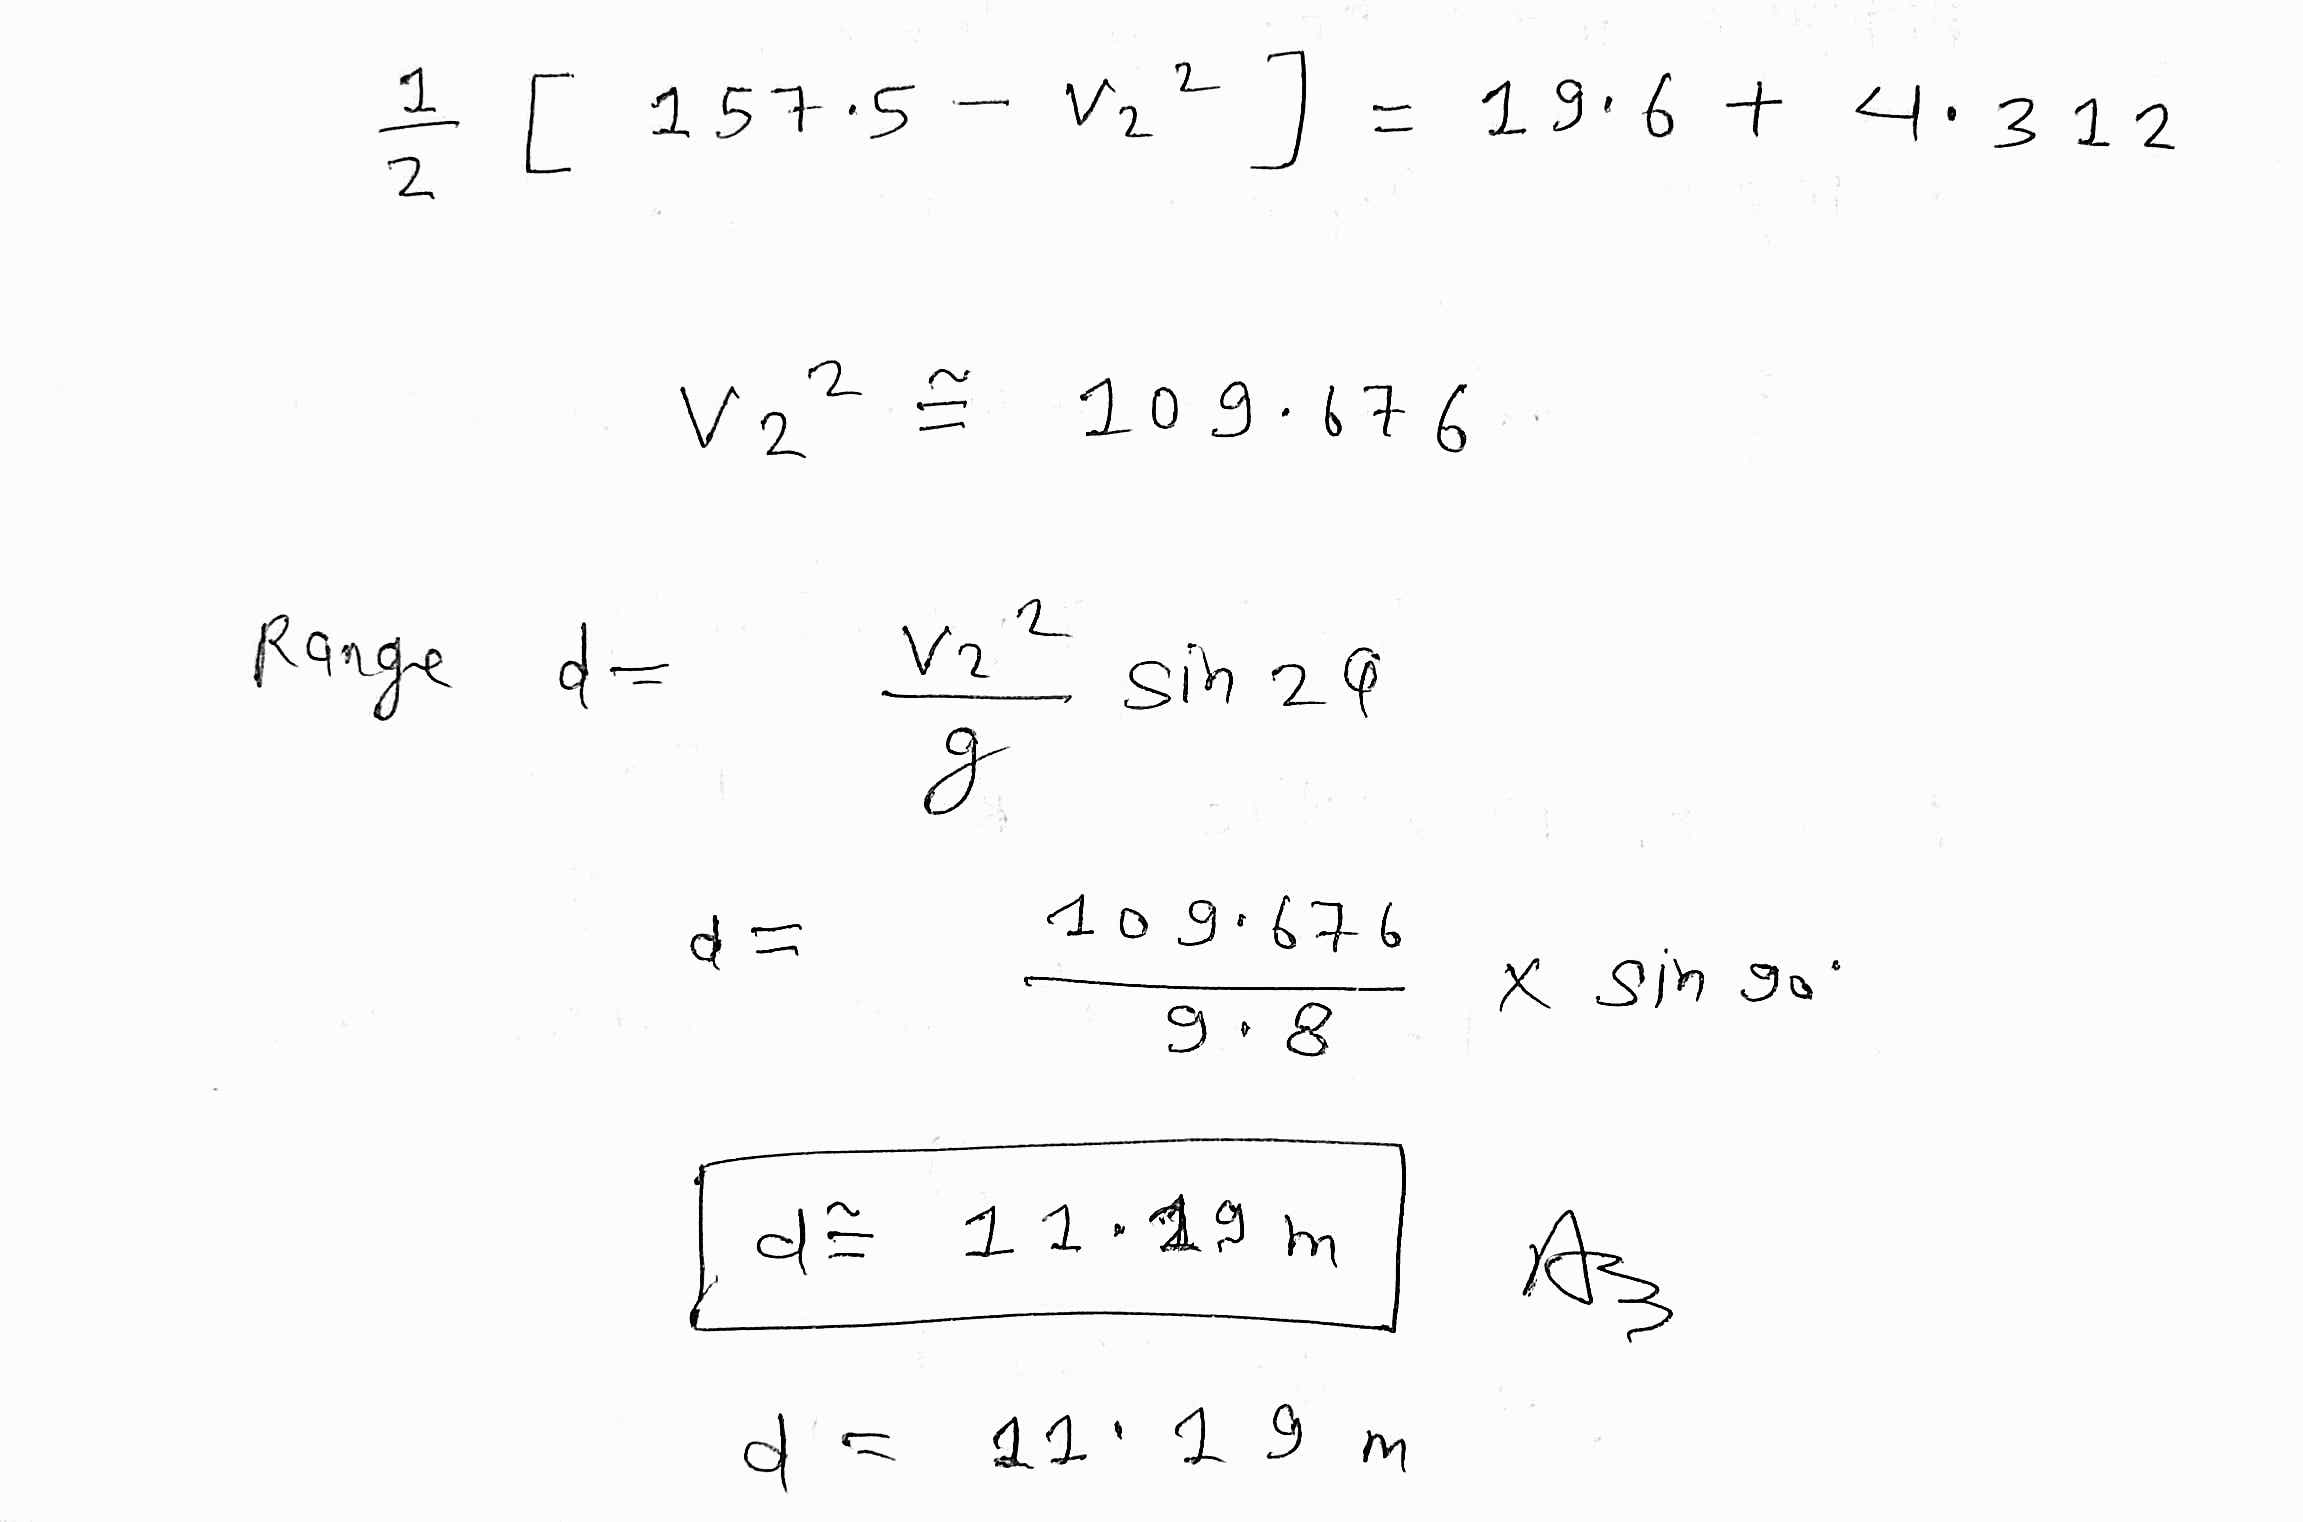 1/2 [ 157.5 - V₂² ] = 19.6 + 4.312
V₂² ≅ 109.676
Range d = V₂²/g sin 2φ
d = 109.676/9.8 × sin 90°
d ≅ 11.19 m
d = 11.19 m